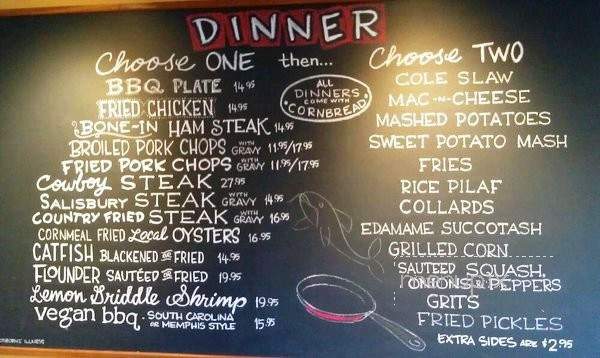 DINNER
Choose ONE then... Choose TWO
BBQ PLATE 14.95
FRIED CHICKEN 14.95
BONE-IN HAM STEAK 14.95
BROILED PORK CHOPS WITH GRAVY 11.95/17.95
FRIED PORK CHOPS WITH GRAVY 11.95/17.95
Cowboy STEAK 27.95
SALISBURY STEAK WITH GRAVY 14.95
COUNTRY FRIED STEAK WITH GRAVY 16.95
CORNMEAL FRIED Local OYSTERS 16.95
CATFISH BLACKENED OR FRIED 14.95
FLOUNDER SAUTÉED OR FRIED 19.95
Lemon Griddle Shrimp 19.95
vegan bbq - SOUTH CAROLINA
OR MEMPHIS STYLE 15.95
ALL
DINNERS
COME WITH
CORNBREAD
COLE SLAW
MAC-N-CHEESE
MASHED POTATOES
SWEET POTATO MASH
FRIES
RICE PILAF
COLLARDS
EDAMAME SUCCOTASH
GRILLED CORN
SAUTEED SQUASH,
ONIONS & PEPPERS
GRITS
FRIED PICKLES
EXTRA SIDES ARE $2.95